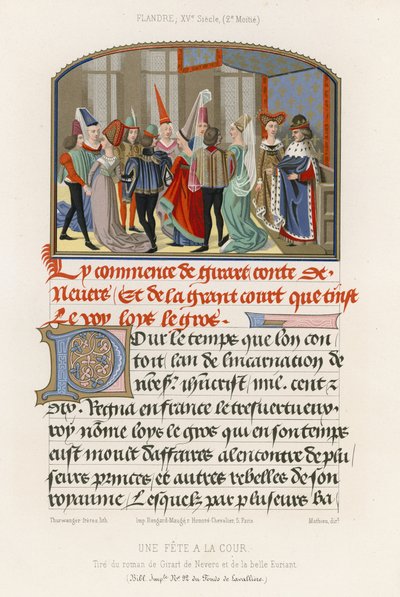 FLANDRE, XVe Siècle, (2e Moitié)
Cy commence de girart conte de
Nevers / Et de la grant court que tinst
Le roy loys le gros.
Pour le temps que lon con
toit lan de lincarnation de
nre sr ihucrist / mil. cent z
dix. Regna en france le tresvertueux
roy nōme loys le gros qui en son temps
eust moult daffaires alencontre de plu
seurs princes et autres rebelles de son
royaume / Lesquelz par pluseurs ba
Thurwanger frères, lith.
Imp. Hangard-Maugé r. Honoré-Chevalier, 5. Paris
Mathieu, dirt.
UNE FÊTE A LA COUR.
Tiré du roman de Girart de Nevers et de la belle Euriant.
(Bibl. Imple No. 92 du Fonds de Lavallière.)